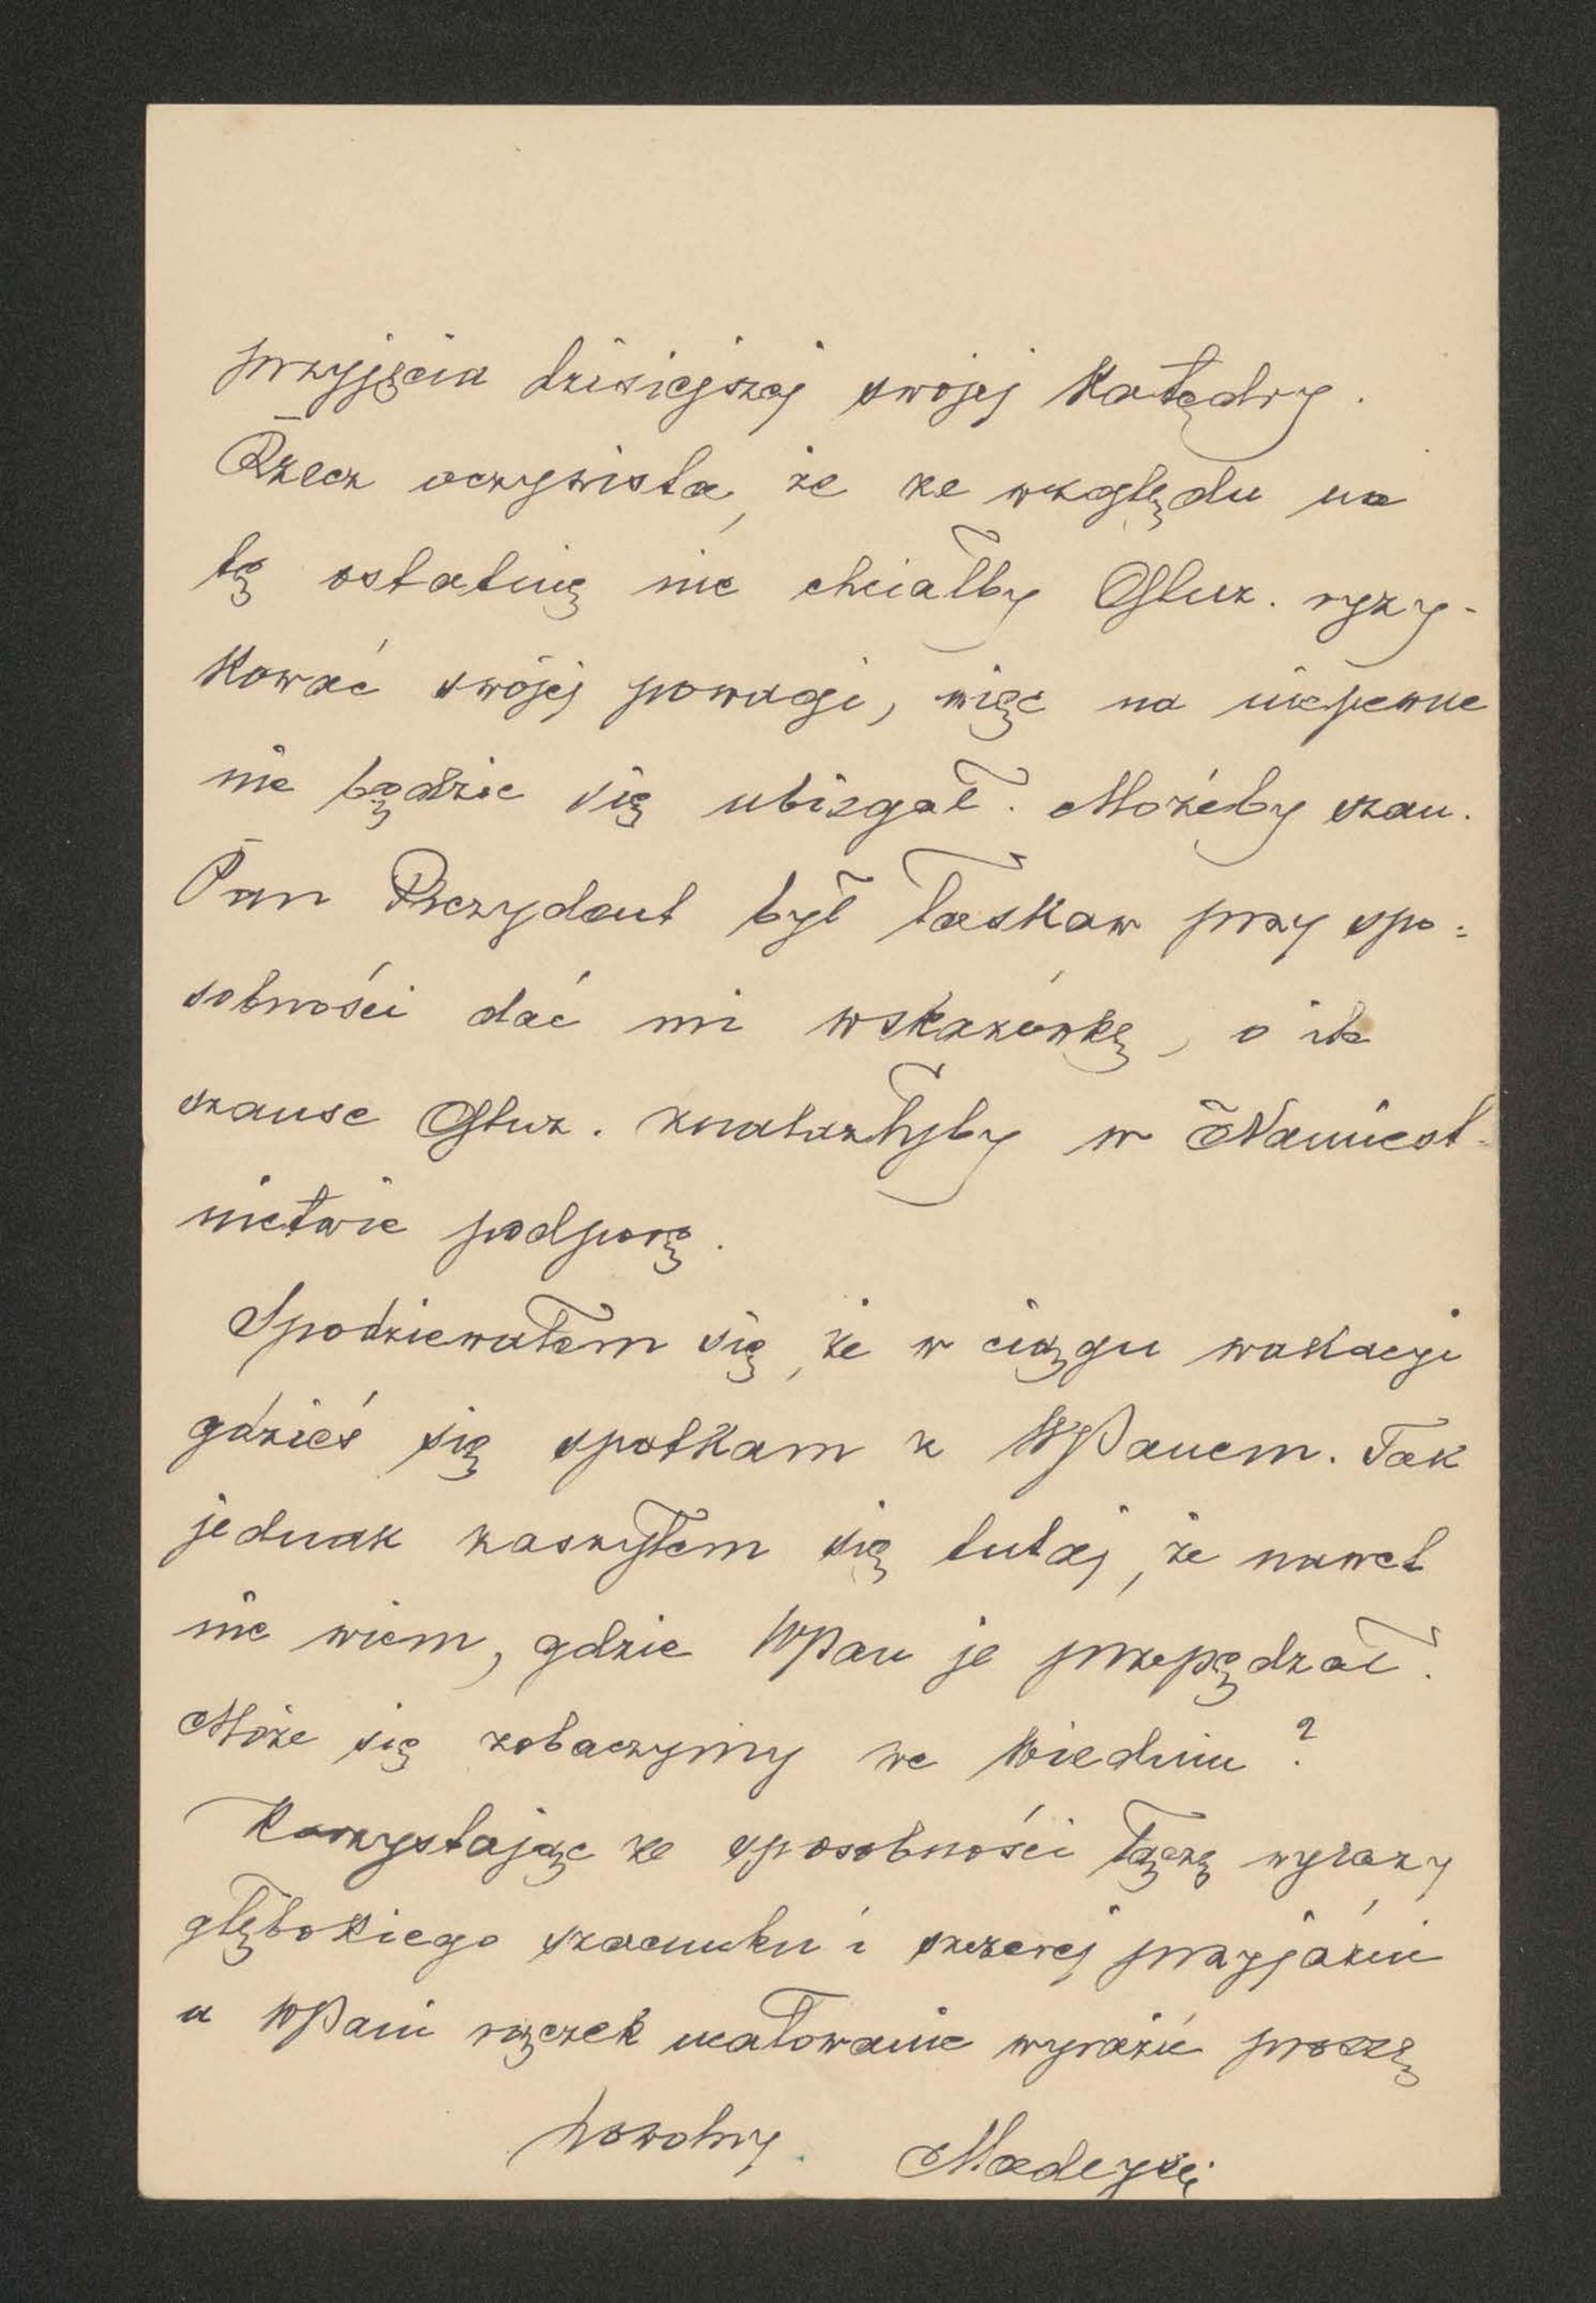 przyjęcia dzisiejszej swojej Katedry.
Rzecz oczywista, że ze względu na
tę ostatnię nie chciałby Głuz. ryzy-
kować swojej powagi, więc na niepewne
nie będzie się ubiegał. Możeby szan.
Pan Prezydent był łaskaw przy spo-
sobności dać mi wskazówkę, o ile
szanse Głuz. znalazłyby w Namiest-
nictwie podporę.
Spodziewałem się, że w ciągu wakacyi
gdzieś się spotkam z WPanem. Tak
jednak zaszyłem się tutaj, że nawet
nie wiem, gdzie WPan je przepędzał.
Może się zobaczymy we Wiedniu?
Korzystając ze sposobności łączę wyrazy
głębokiego szacunku i szczerej przyjaźni
a WPani rączek ucałowanie wyrazić proszę
powolny Madeyski